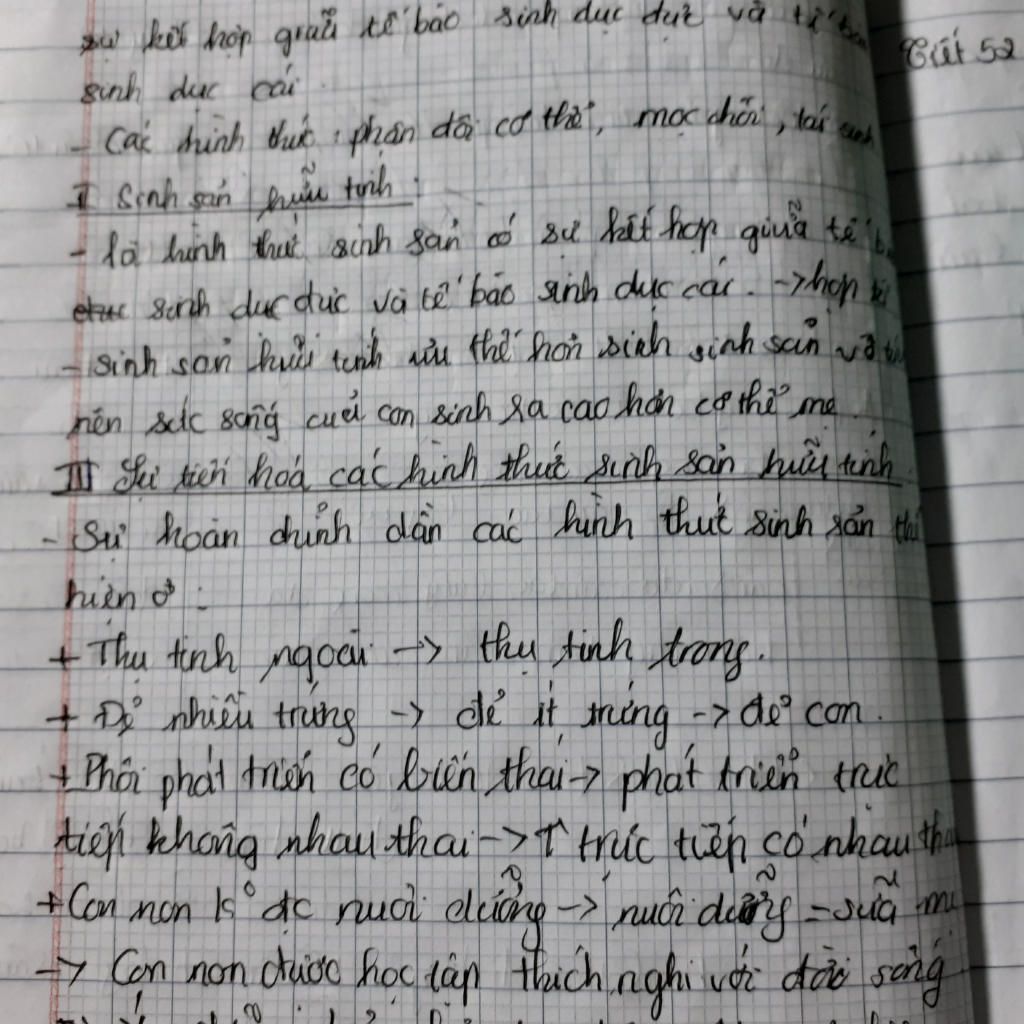 sự kết hợp giữa tế bào sinh dục đực và tế bào
sinh dục cái.
- Các hình thức: phân đôi cơ thể, mọc chồi, tái sinh
II Sinh sản hữu tính:
- là hình thức sinh sản có sự kết hợp giữa tế b
sinh dục đực và tế bào sinh dục cái. → hợp tử
- sinh sản hữu tính ưu thế hơn sinh sinh sản vô tín
nên sức sống của con sinh ra cao hơn cơ thể mẹ.
III Sự tiến hoá các hình thức sinh sản hữu tính
- Sự hoàn chỉnh dần các hình thức sinh sản thể
hiện ở:
+ Thụ tinh ngoài → thụ tinh trong.
+ Đẻ nhiều trứng → đẻ ít trứng → đẻ con.
+ Phôi phát triển có biến thái → phát triển trực
tiếp không nhau thai → ↑ trực tiếp có nhau tha
+ Con non k° đc nuôi dưỡng → nuôi dưỡng = sữa mẹ
→ Con non được học tập thích nghi với đời sống
Tiết 52